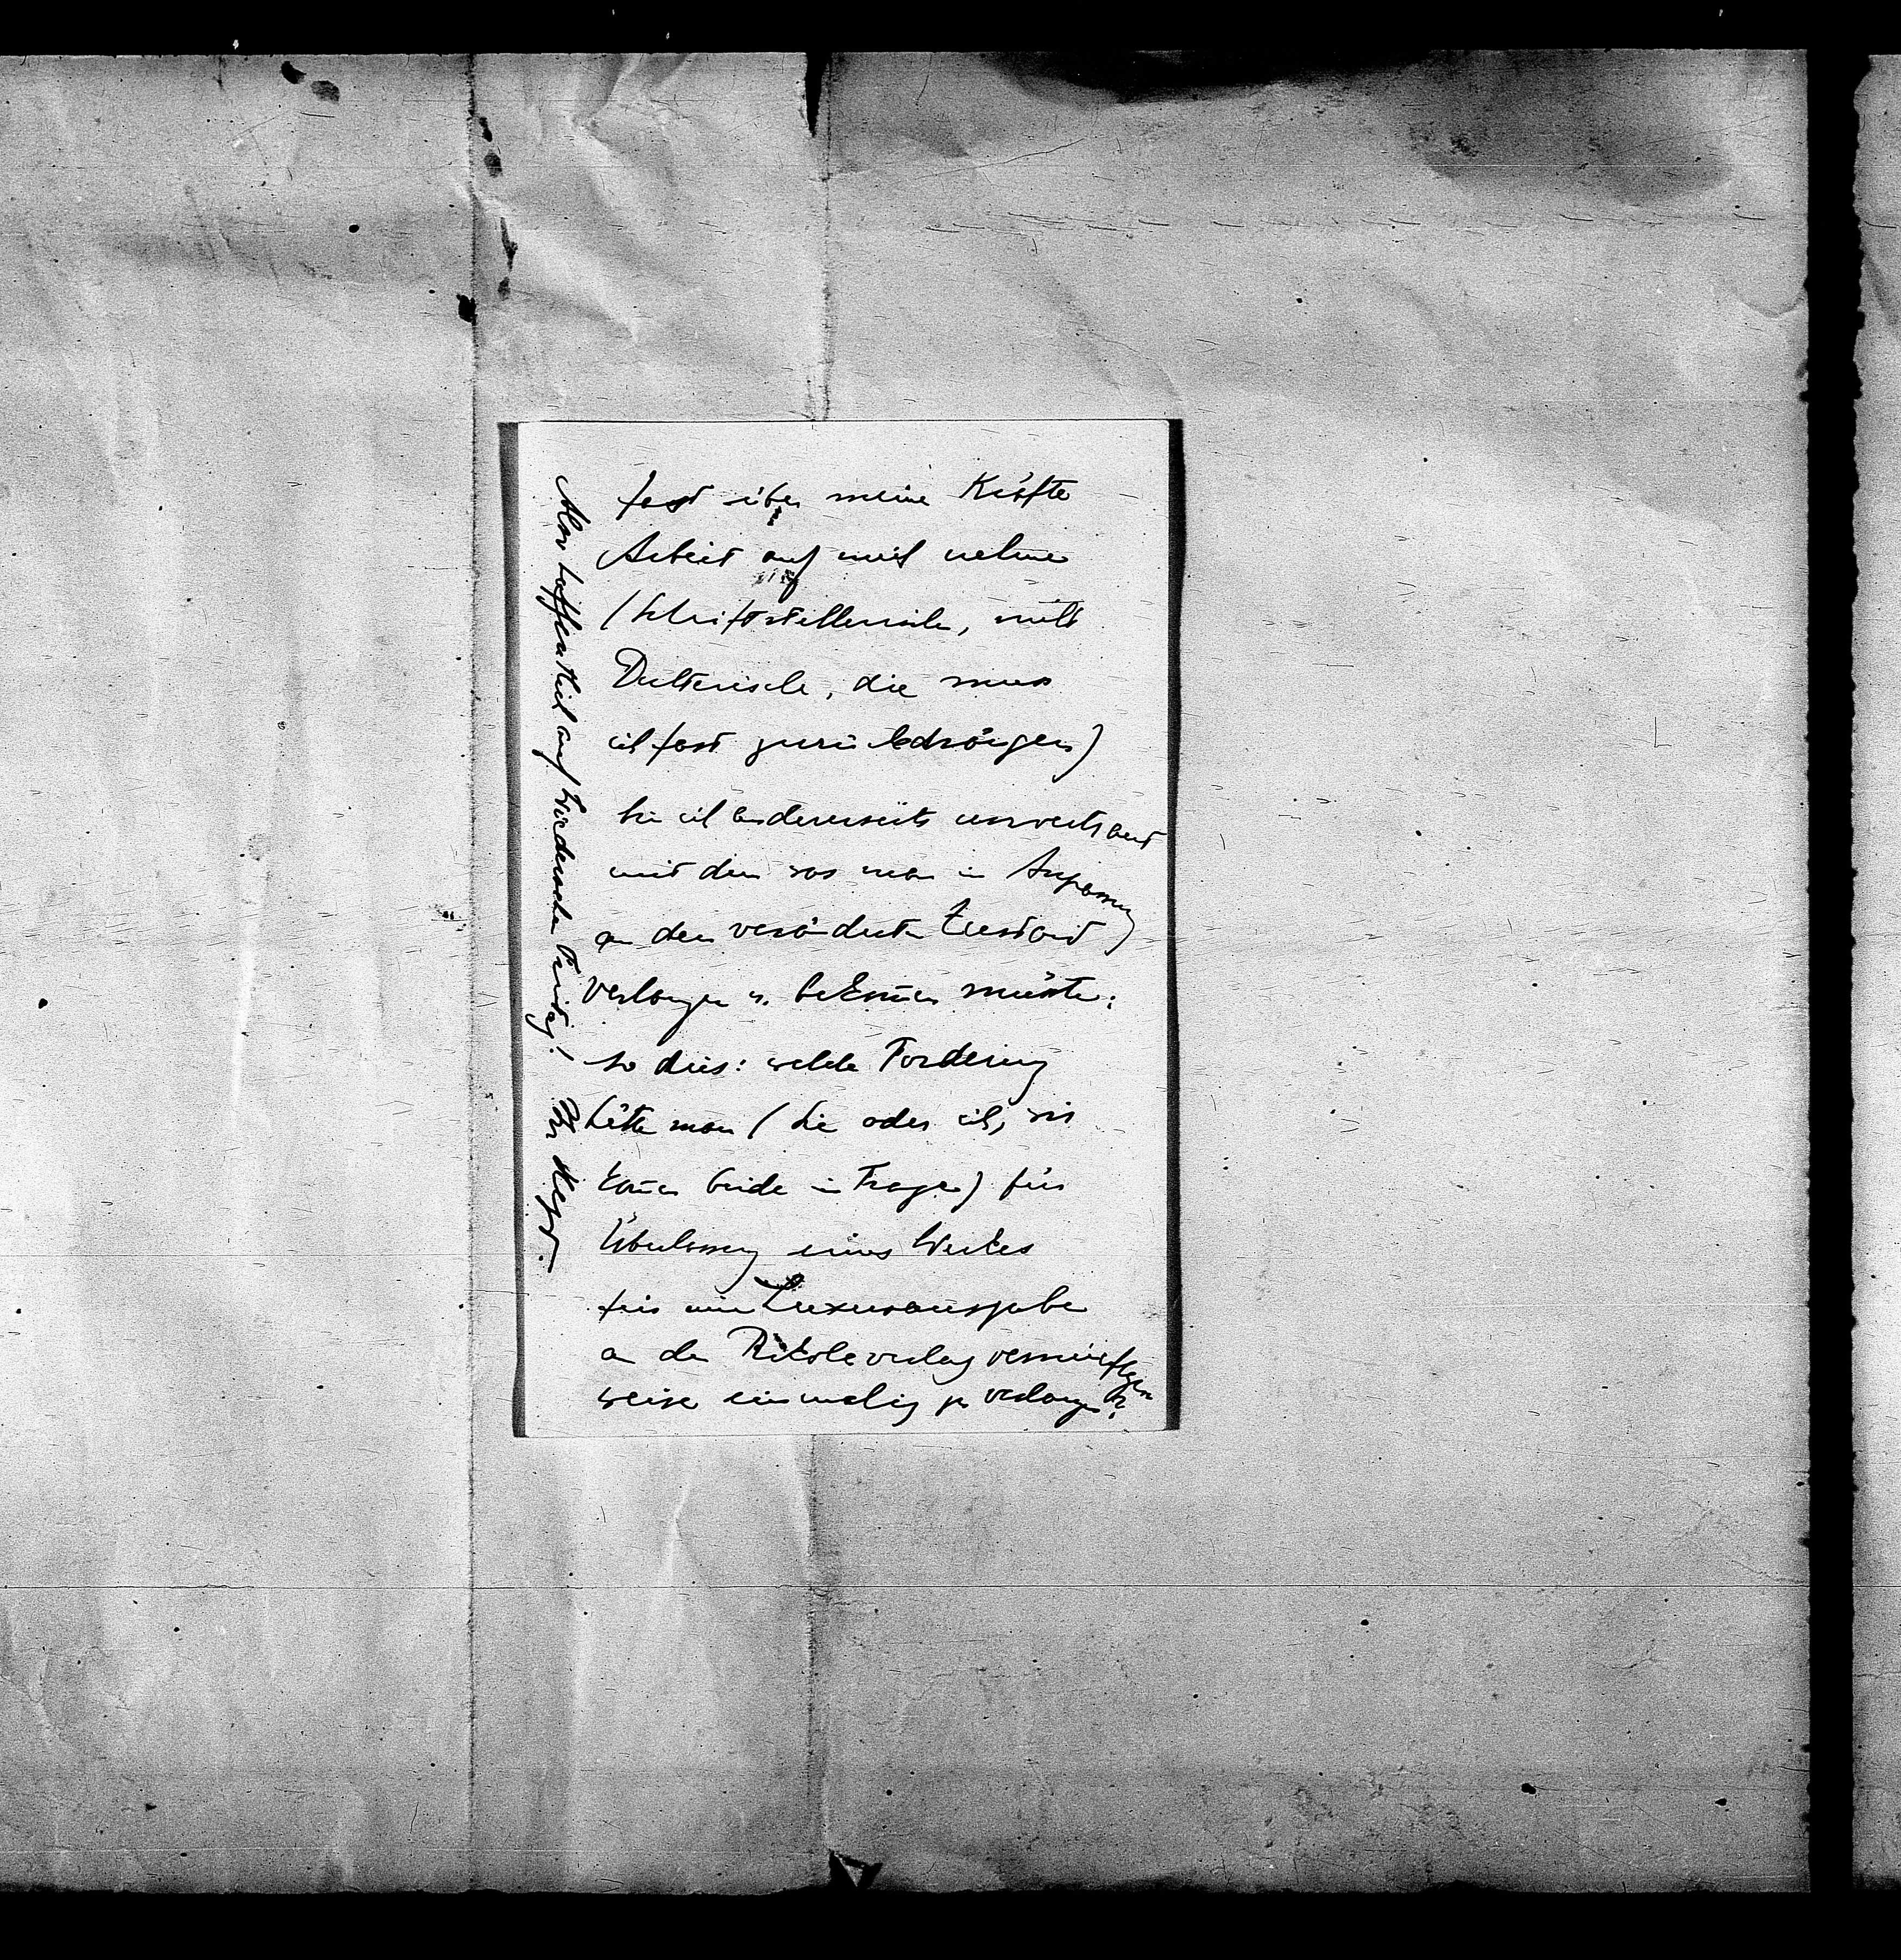 fast über meine Kräfte
Arbeit auf mich nehme
(schriftstellerische, nicht
Dichterische, die muss
ich fast zurückdrängen)
bin ich andererseits unvertraut
mit dem was man in Anpassung
an den veränderten Zustand
verlangen u. bekommen müsste:
so dies: welche Forderung
hätte man (Sie oder ich, wir
kommen beide in Frage) für
Überlassung eines Werkes
für eine Luxusausgabe
an den Rikolaverlag vernünftiger
weise einmalig zu verlangen?
Also hoffentlich auf Wiedersehen Freitag! Ihr